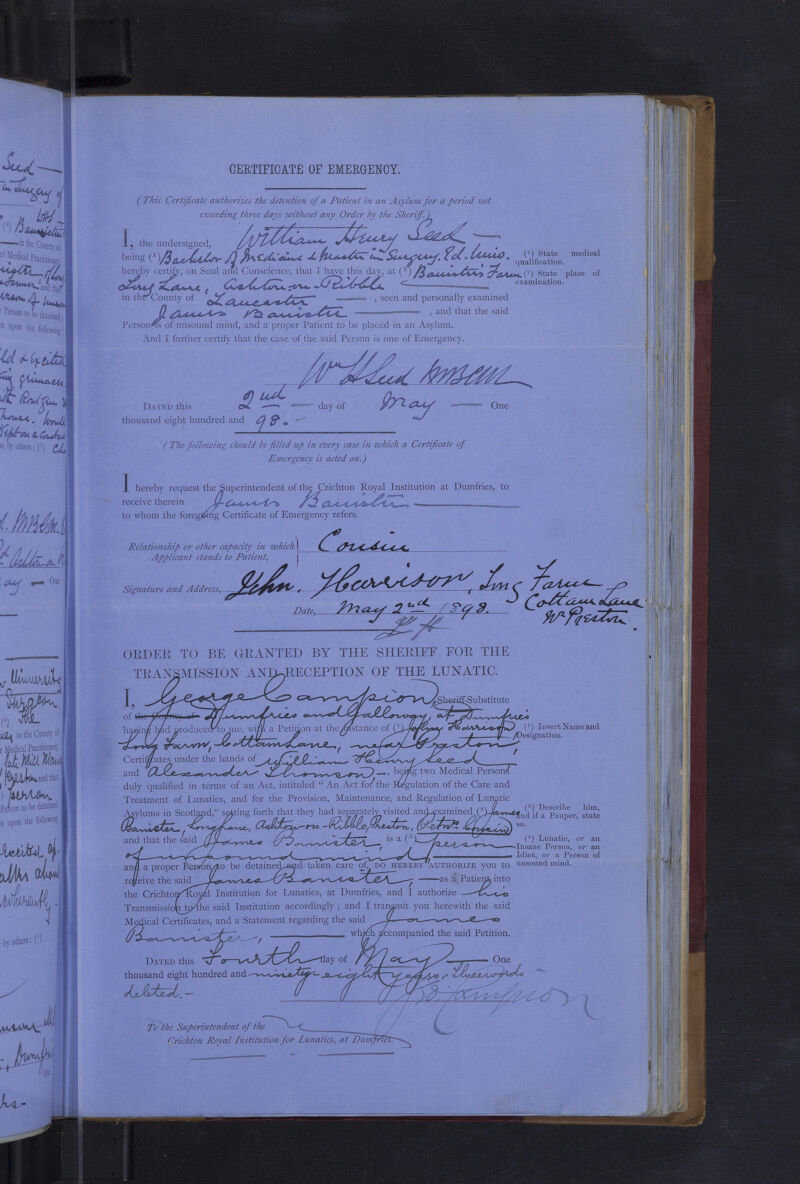 CERTIFICATE OF EMERGENCY.
(This Certificate authorizes the detention of a Patient in an Asylum for a period not
exceeding three days without any Order by the Sheriff.)
I, the undersigned, William Henry Seed —
being (¹) Bachelor of Medicine & Master in Surgery, Ed. Univ.
(¹) State medical
qualification.
hereby certify, on Soul and Conscience, that I have this day, at (²) Banister's Farm
(²) State place of
examination.
Long Lane, Ashton-on-Ribble
in the County of Lancaster —, seen and personally examined
James Banister —, and that the said
Person is of unsound mind, and a proper Patient to be placed in an Asylum.
And I further certify that the case of the said Person is one of Emergency.
Wm H Seed MBCM
DATED this 2nd — day of May — One
thousand eight hundred and 98. —
(The following should be filled up in every case in which a Certificate of
Emergency is acted on.)
I hereby request the Superintendent of the Crichton Royal Institution at Dumfries, to
receive therein James Banister —
to whom the foregoing Certificate of Emergency refers.
Relationship or other capacity in which
Applicant stands to Patient, } Cousin
Signature and Address, John. Harrison, Long Farm
Cottam Lane
Nr Preston.
Date, May 2nd 1898.
ORDER TO BE GRANTED BY THE SHERIFF FOR THE
TRANSMISSION AND RECEPTION OF THE LUNATIC.
I, George Campion, Sheriff-Substitute
of Dumfries and Galloway, at Dumfries
having had produced to me, with a Petition at the instance of (¹) John Harrison
(¹) Insert Name and
Designation.
Long Farm, Cottam Lane, near Preston,
Certificates under the hands of William Henry Seed
and Alexander Thomson —, being two Medical Persons
duly qualified in terms of an Act, intituled "An Act for the Regulation of the Care and
Treatment of Lunatics, and for the Provision, Maintenance, and Regulation of Lunatic
Asylums in Scotland," setting forth that they had separately visited and examined (²) James
(²) Describe him,
and if a Pauper, state
so.
Banister, Long Lane, Ashton-on-Ribble, Preston, Petnrs. Cousin
and that the said James Banister, is a (³) person
(³) Lunatic, or an
Insane Person, or an
Idiot, or a Person of
unsound mind.
of unsound mind,
and a proper Person to be detained and taken care of, DO HEREBY AUTHORIZE you to
receive the said James Banister, — as a Patient into
the Crichton Royal Institution for Lunatics, at Dumfries, and I authorize his
Transmission to the said Institution accordingly; and I transmit you herewith the said
Medical Certificates, and a Statement regarding the said James
Banister, — which accompanied the said Petition.
DATED this Fourth day of May — One
thousand eight hundred and ninety-eight years, Three words
deleted. —
Campion
To the Superintendent of the
Crichton Royal Institution for Lunatics, at Dumfries.